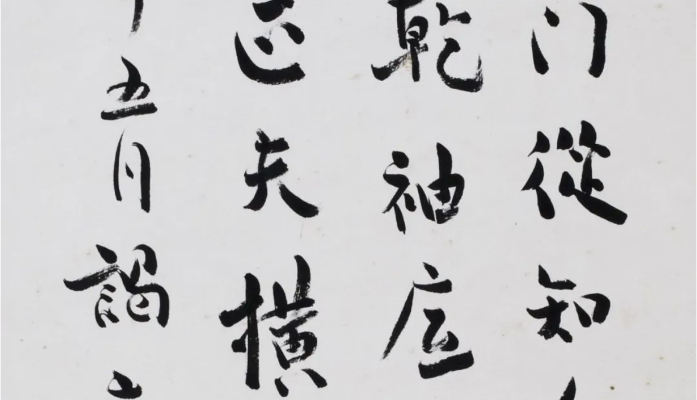 门從知
乾袖底
正夫横
五月謁